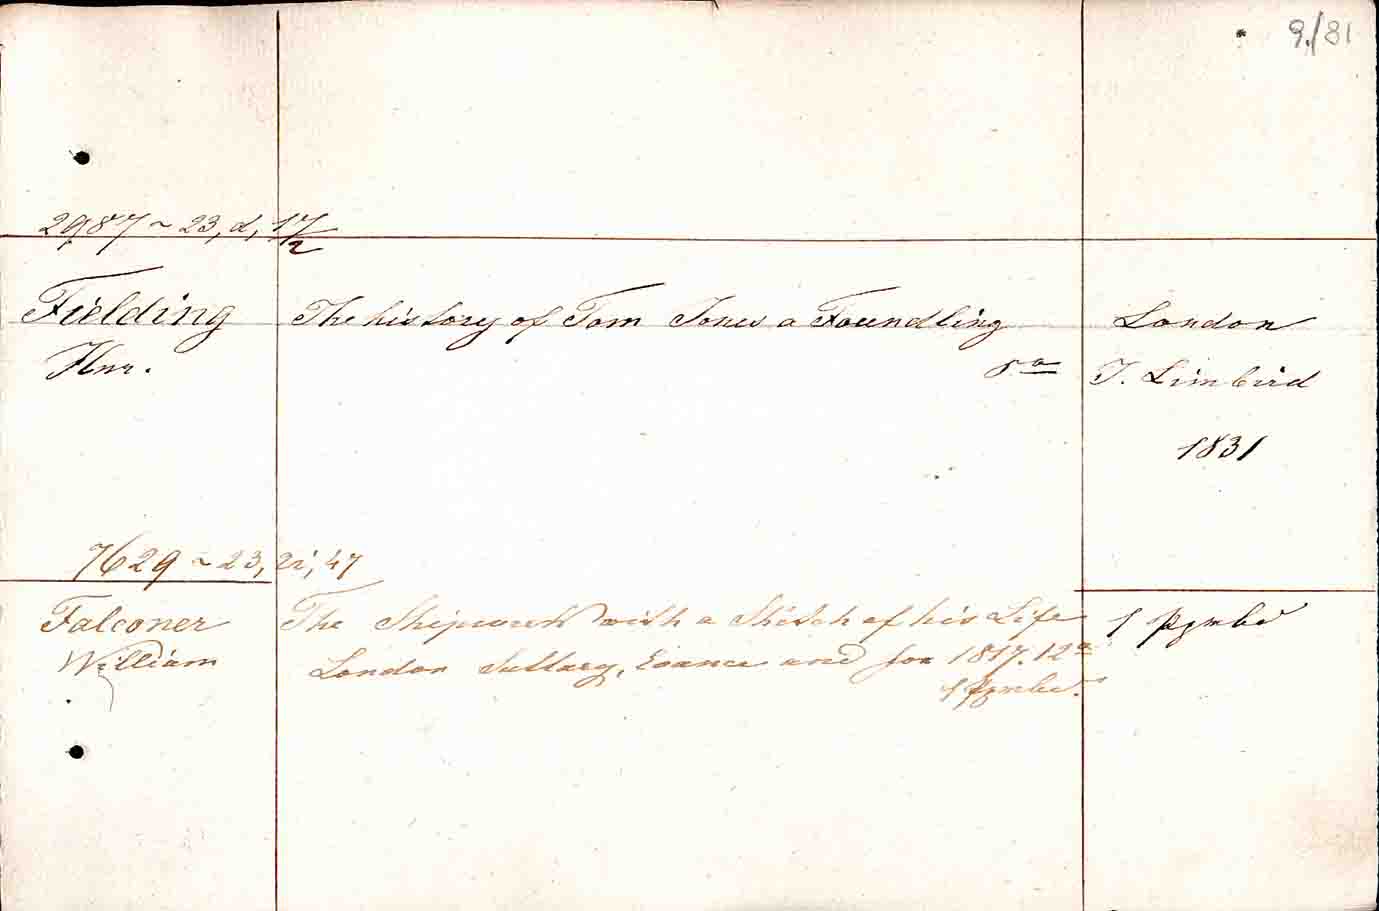 9./81
2987 ~ 23, d, 17/2
Fielding The history of Tom Jones a Foundling London
Hnr. 8º T. Limbird
1831
7629 ~ 23, 47
Falconer The Shipwreck with a Sketch of his Life 1
William London Suttaey, Evance and fox 1817. 12º
1